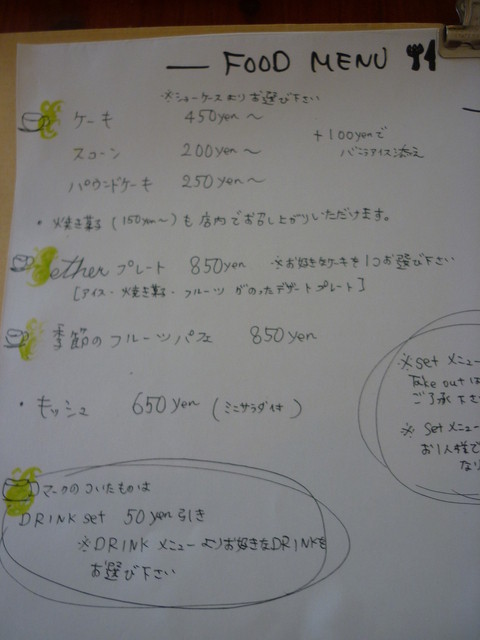 — FOOD MENU
※ショーケースよりお選び下さい
ケーキ 450yen〜
スコーン 200yen〜
+100yenで
バニラアイス添え
パウンドケーキ 250yen〜
・焼き菓子(150yen〜)も店内でお召し上がりいただけます。
ether プレート 850yen ※お好きなケーキを1つお選び下さい
[アイス・焼き菓子・フルーツ がのったデザートプレート]
季節のフルーツパフェ 850yen
・キッシュ 650yen (ミニサラダ付)
※set メニュー
Take out は
ご了承下さ
※ set メニュー
お1人様で
なり
マークのついたものは
DRINK set 50yen引き
※DRINK メニューよりお好きなDRINKを
お選び下さい